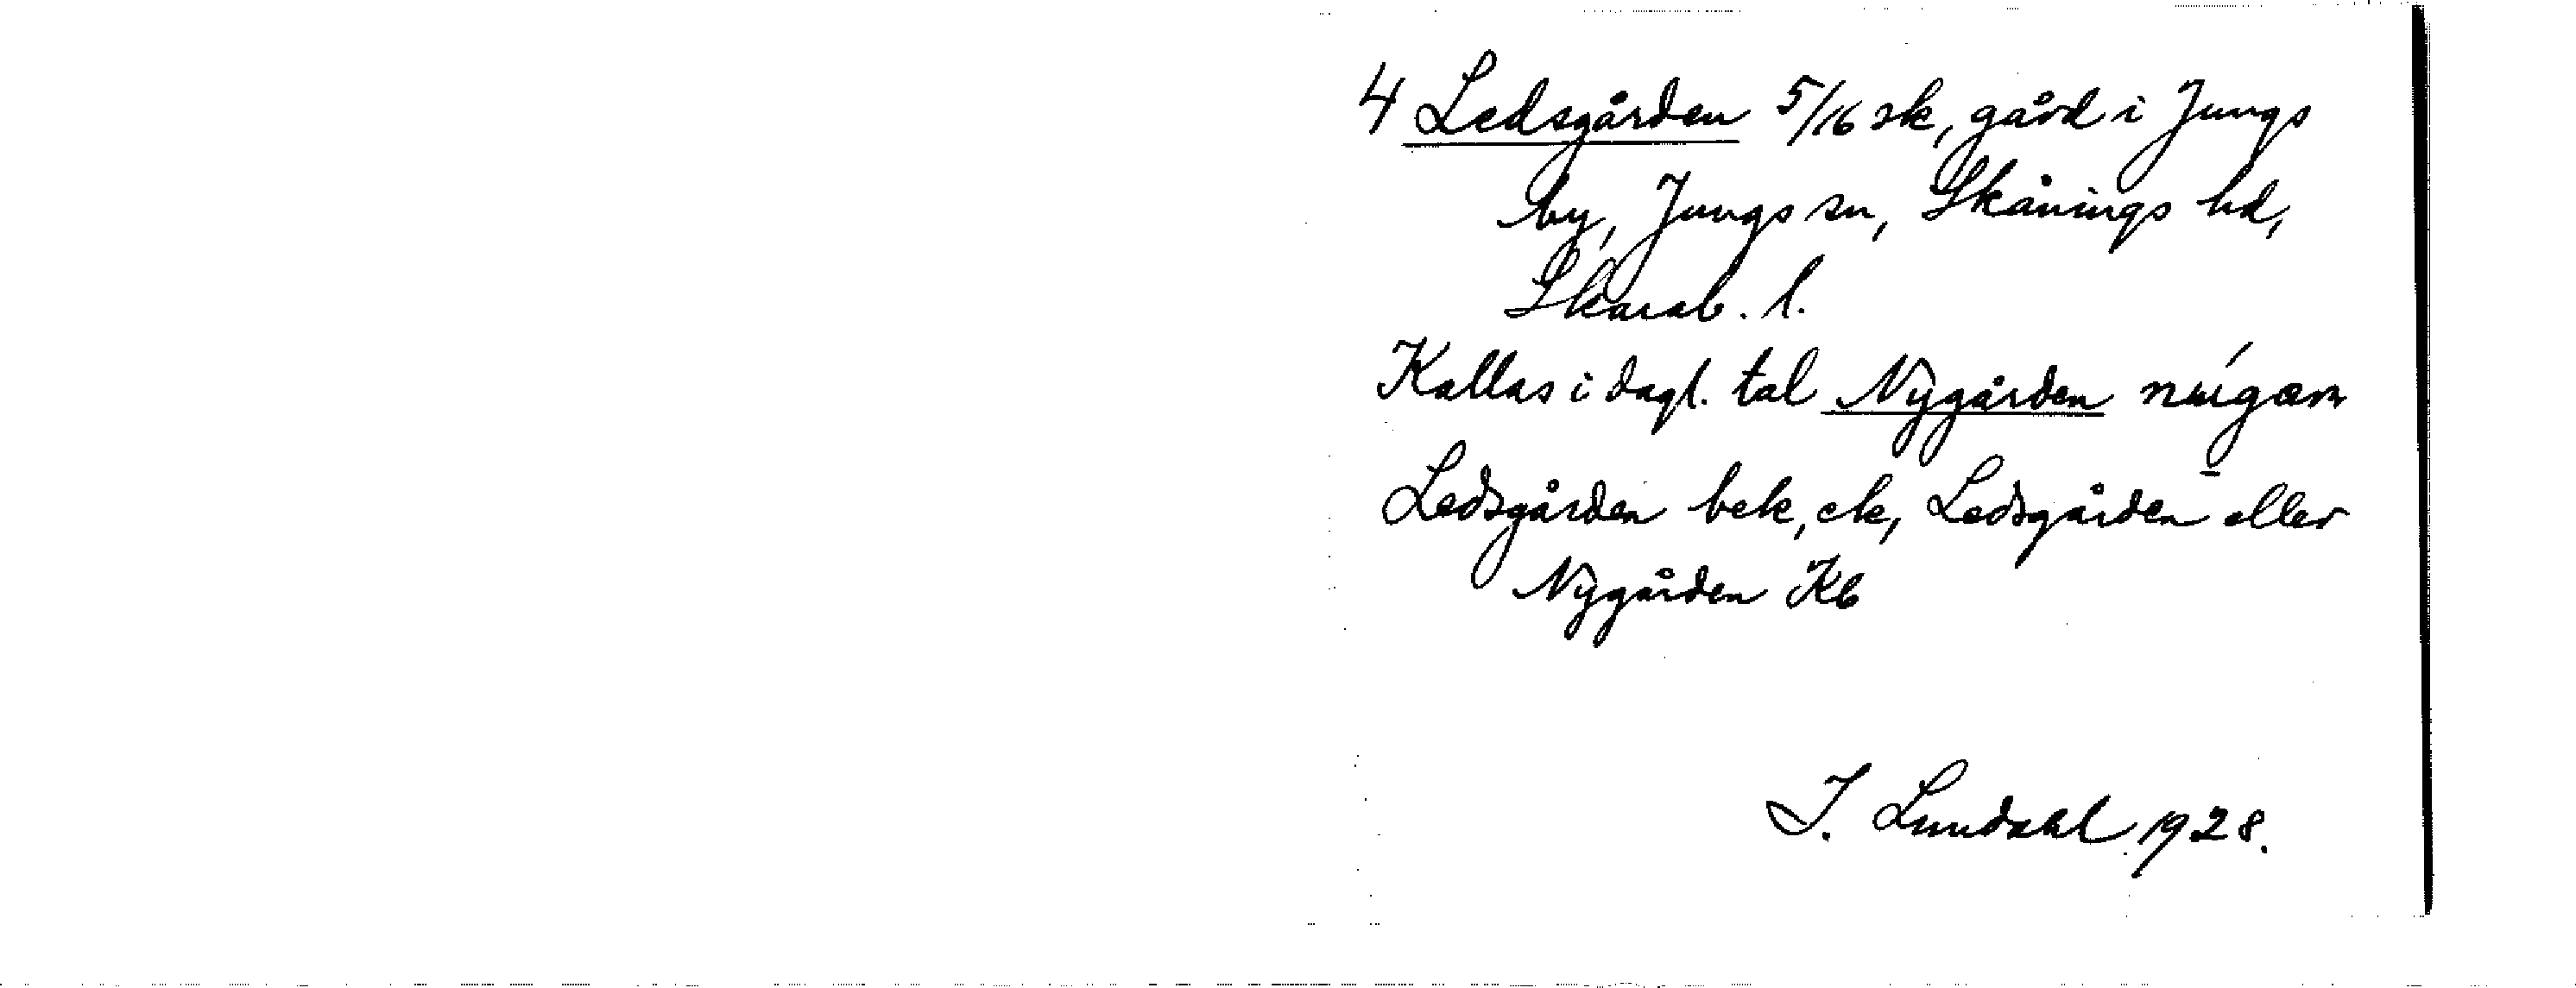 4 Ledsgården 5/16 sk, gård i Jungs
by, Jungs sn, Skånings hd,
Skarab. l.
Kallas i dagl. tal Nygården
Ledsgården bek, ek, Ledsgården eller
Nygården Kb
I. Lundahl 1928.